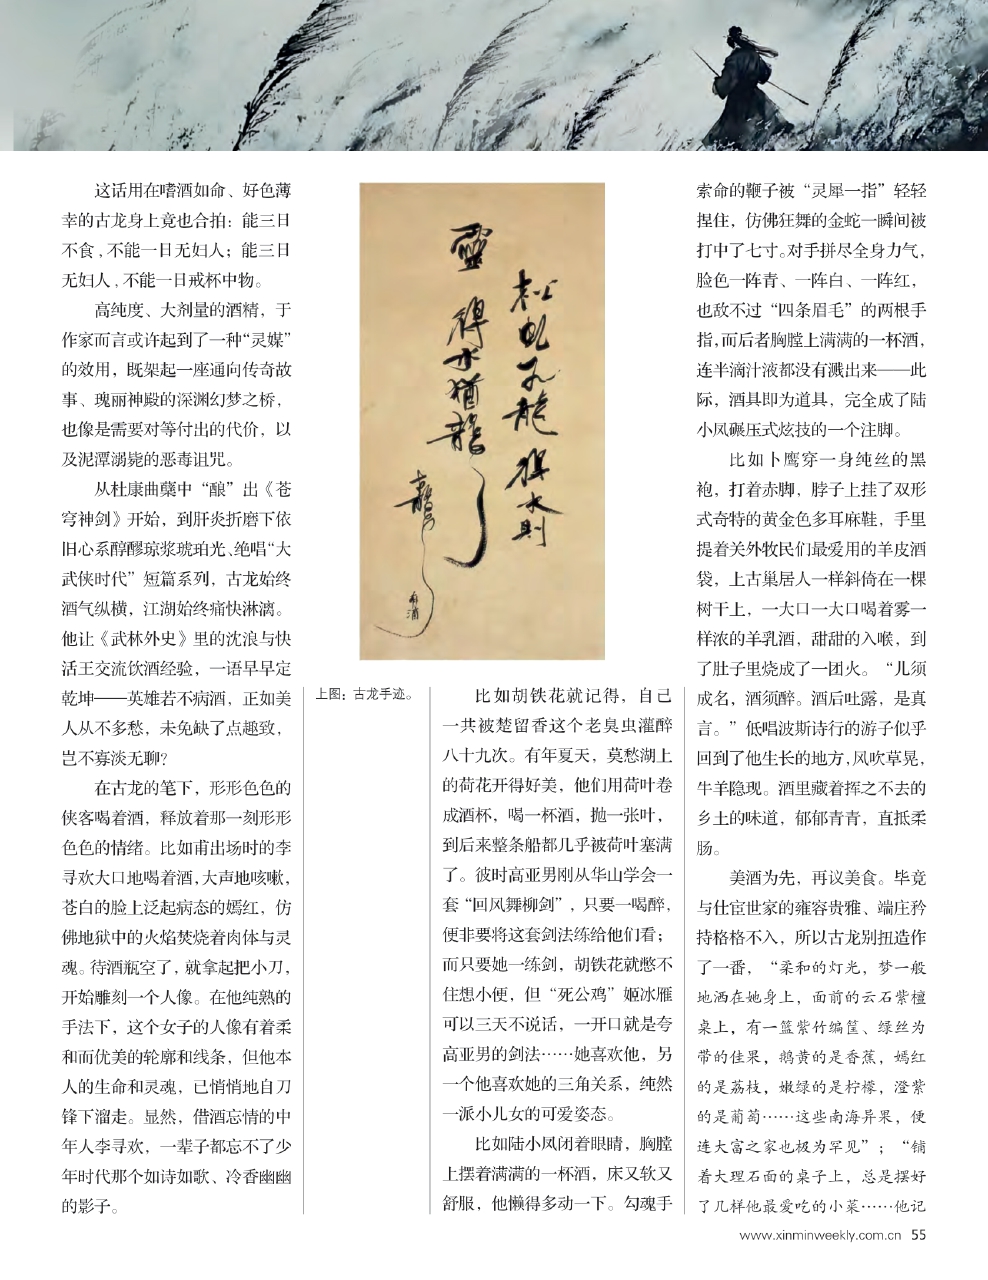 这话用在嗜酒如命、好色薄
幸的古龙身上竟也合拍：能三日
不食，不能一日无妇人；能三日
无妇人，不能一日戒杯中物。
高纯度、大剂量的酒精，于
作家而言或许起到了一种“灵媒”
的效用，既架起一座通向传奇故
事、瑰丽神殿的深渊幻梦之桥，
也像是需要对等付出的代价，以
及泥潭溺毙的恶毒诅咒。
从杜康曲蘖中“酿”出《苍
穹神剑》开始，到肝炎折磨下依
旧心系醇醪琼浆琥珀光、绝唱“大
武侠时代”短篇系列，古龙始终
酒气纵横，江湖始终痛快淋漓。
他让《武林外史》里的沈浪与快
活王交流饮酒经验，一语早早定
乾坤——英雄若不病酒，正如美
人从不多愁，未免缺了点趣致，
岂不寡淡无聊？
在古龙的笔下，形形色色的
侠客喝着酒，释放着那一刻形形
色色的情绪。比如甫出场时的李
寻欢大口地喝着酒，大声地咳嗽，
苍白的脸上泛起病态的嫣红，仿
佛地狱中的火焰焚烧着肉体与灵
魂。待酒瓶空了，就拿起把小刀，
开始雕刻一个人像。在他纯熟的
手法下，这个女子的人像有着柔
和而优美的轮廓和线条，但他本
人的生命和灵魂，已悄悄地自刀
锋下溜走。显然，借酒忘情的中
年人李寻欢，一辈子都忘不了少
年时代那个如诗如歌、冷香幽幽
的影子。
龍 得水則
靈
得水猶龍
上图：古龙手迹。
比如胡铁花就记得，自己
一共被楚留香这个老臭虫灌醉
八十九次。有年夏天，莫愁湖上
的荷花开得好美，他们用荷叶卷
成酒杯，喝一杯酒，抛一张叶，
到后来整条船都几乎被荷叶塞满
了。彼时高亚男刚从华山学会一
套“回风舞柳剑”，只要一喝醉，
便非要将这套剑法练给他们看；
而只要她一练剑，胡铁花就憋不
住想小便，但“死公鸡”姬冰雁
可以三天不说话，一开口就是夸
高亚男的剑法……她喜欢他，另
一个他喜欢她的三角关系，纯然
一派小儿女的可爱姿态。
比如陆小凤闭着眼睛，胸膛
上摆着满满的一杯酒，床又软又
舒服，他懒得多动一下。勾魂手
索命的鞭子被“灵犀一指”轻轻
捏住，仿佛狂舞的金蛇一瞬间被
打中了七寸。对手拼尽全身力气，
脸色一阵青、一阵白、一阵红，
也敌不过“四条眉毛”的两根手
指，而后者胸膛上满满的一杯酒，
连半滴汁液都没有溅出来——此
际，酒具即为道具，完全成了陆
小凤碾压式炫技的一个注脚。
比如卜鹰穿一身纯丝的黑
袍，打着赤脚，脖子上挂了双形
式奇特的黄金色多耳麻鞋，手里
提着关外牧民们最爱用的羊皮酒
袋，上古巢居人一样斜倚在一棵
树干上，一大口一大口喝着雾一
样浓的羊乳酒，甜甜的入喉，到
了肚子里烧成了一团火。“儿须
成名，酒须醉。酒后吐露，是真
言。”低唱波斯诗行的游子似乎
回到了他生长的地方，风吹草晃，
牛羊隐现。酒里藏着挥之不去的
乡土的味道，郁郁青青，直抵柔
肠。
美酒为先，再议美食。毕竟
与仕宦世家的雍容贵雅、端庄矜
持格格不入，所以古龙别扭造作
了一番，“柔和的灯光，梦一般
地洒在她身上，面前的云石紫檀
桌上，有一篮紫竹编筐、绿丝为
带的佳果，鹅黄的是香蕉，嫣红
的是荔枝，嫩绿的是柠檬，澄紫
的是葡萄……这些南海异果，便
连大富之家也极为罕见”；“铺
着大理石面的桌子上，总是摆好
了几样他最爱吃的小菜……他记
www.xinminweekly.com.cn 55